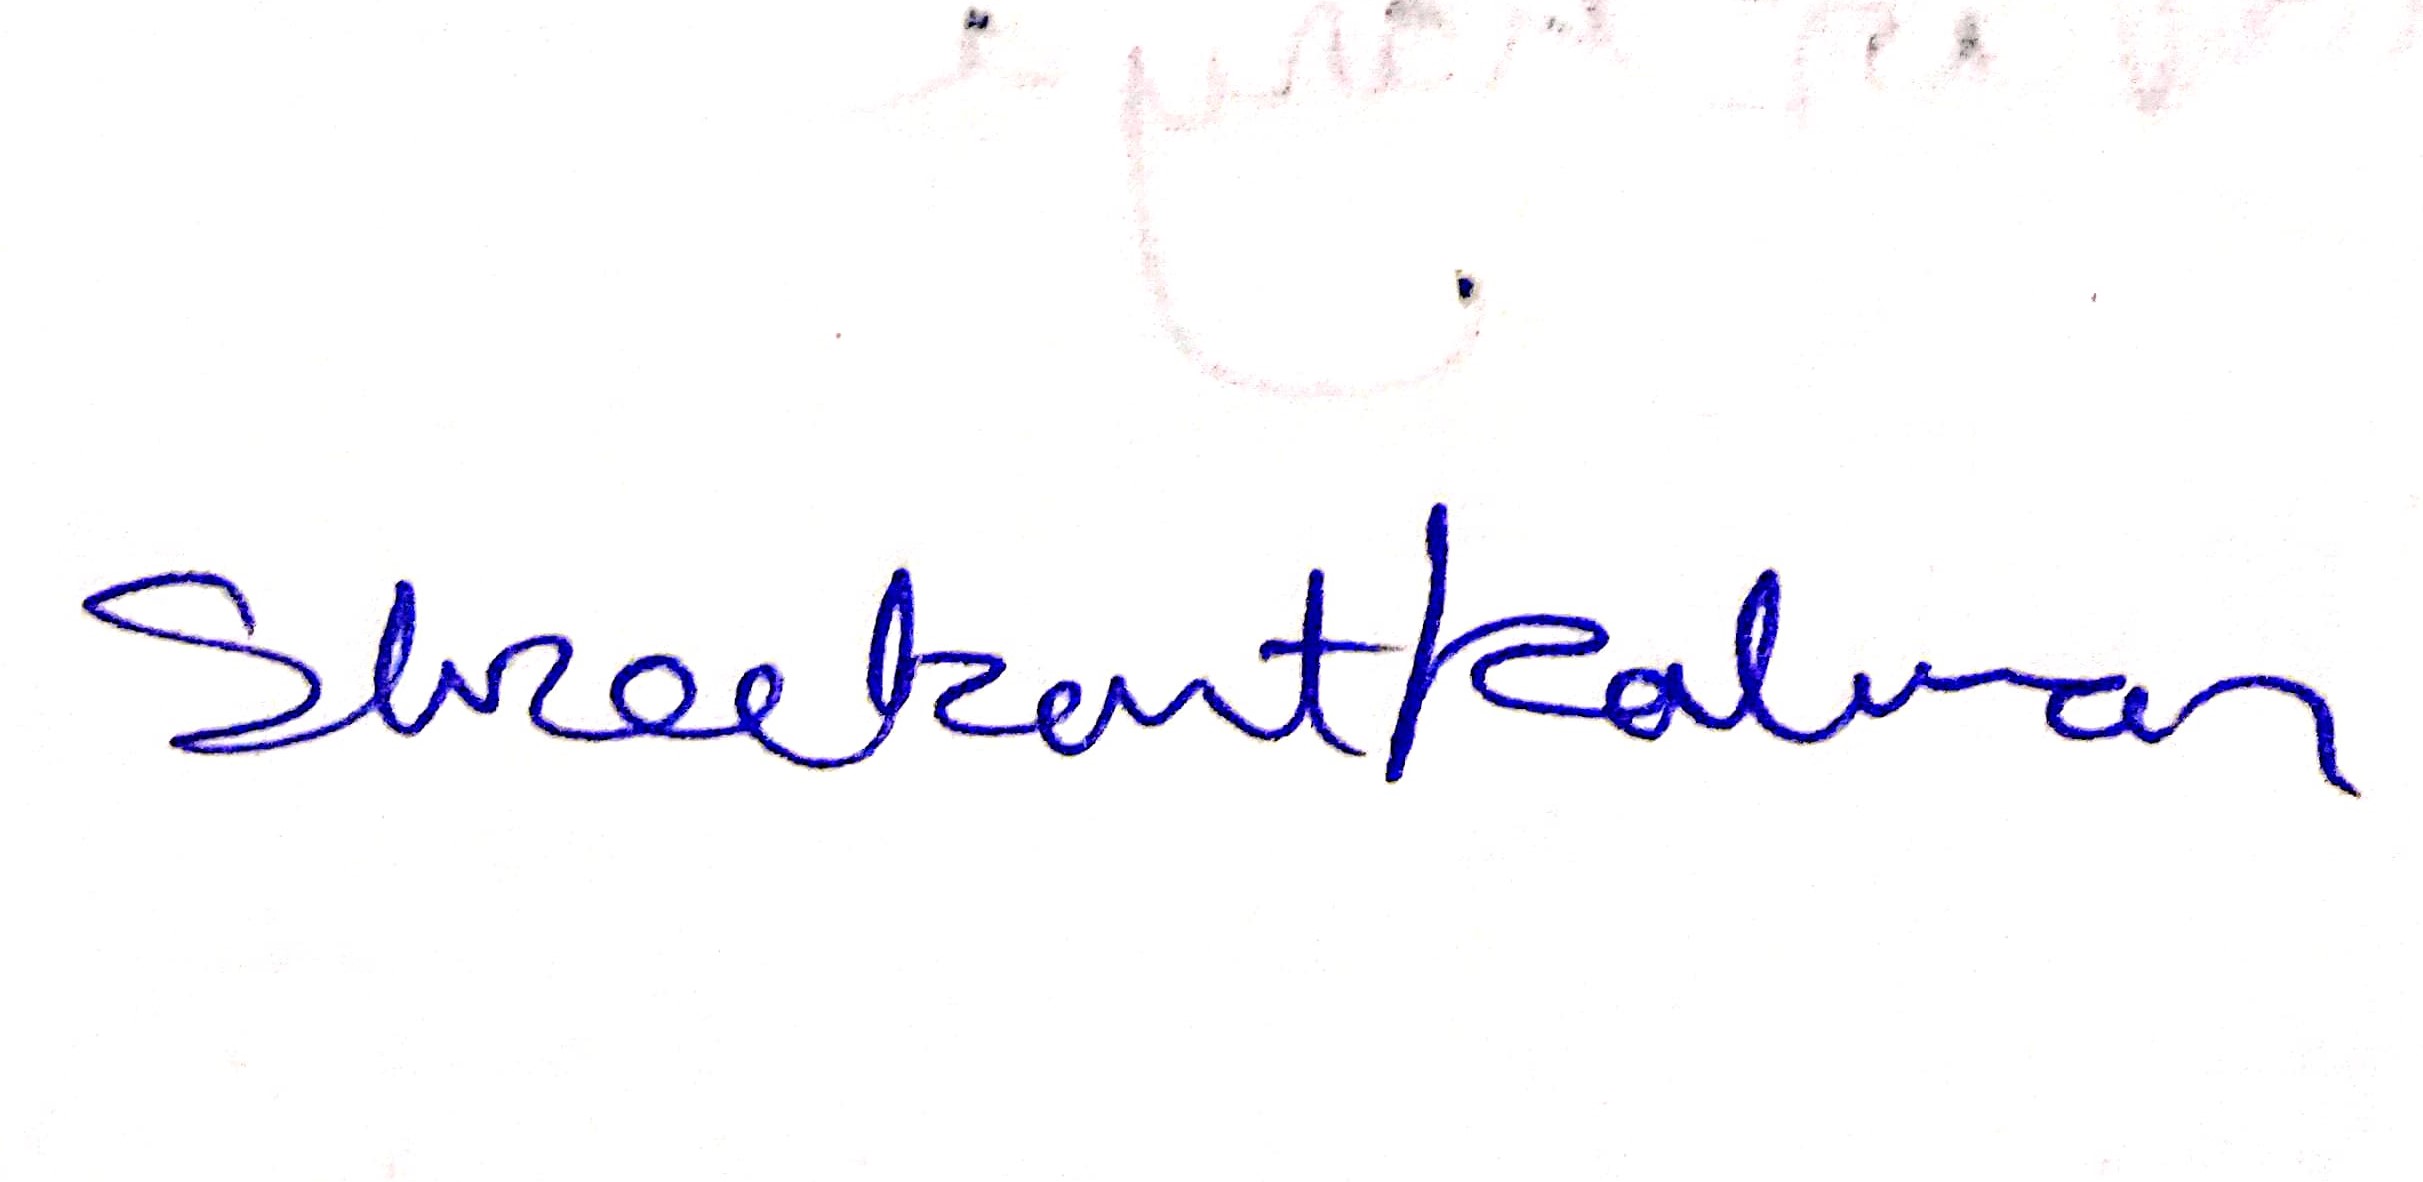 Shreekant Kalwan